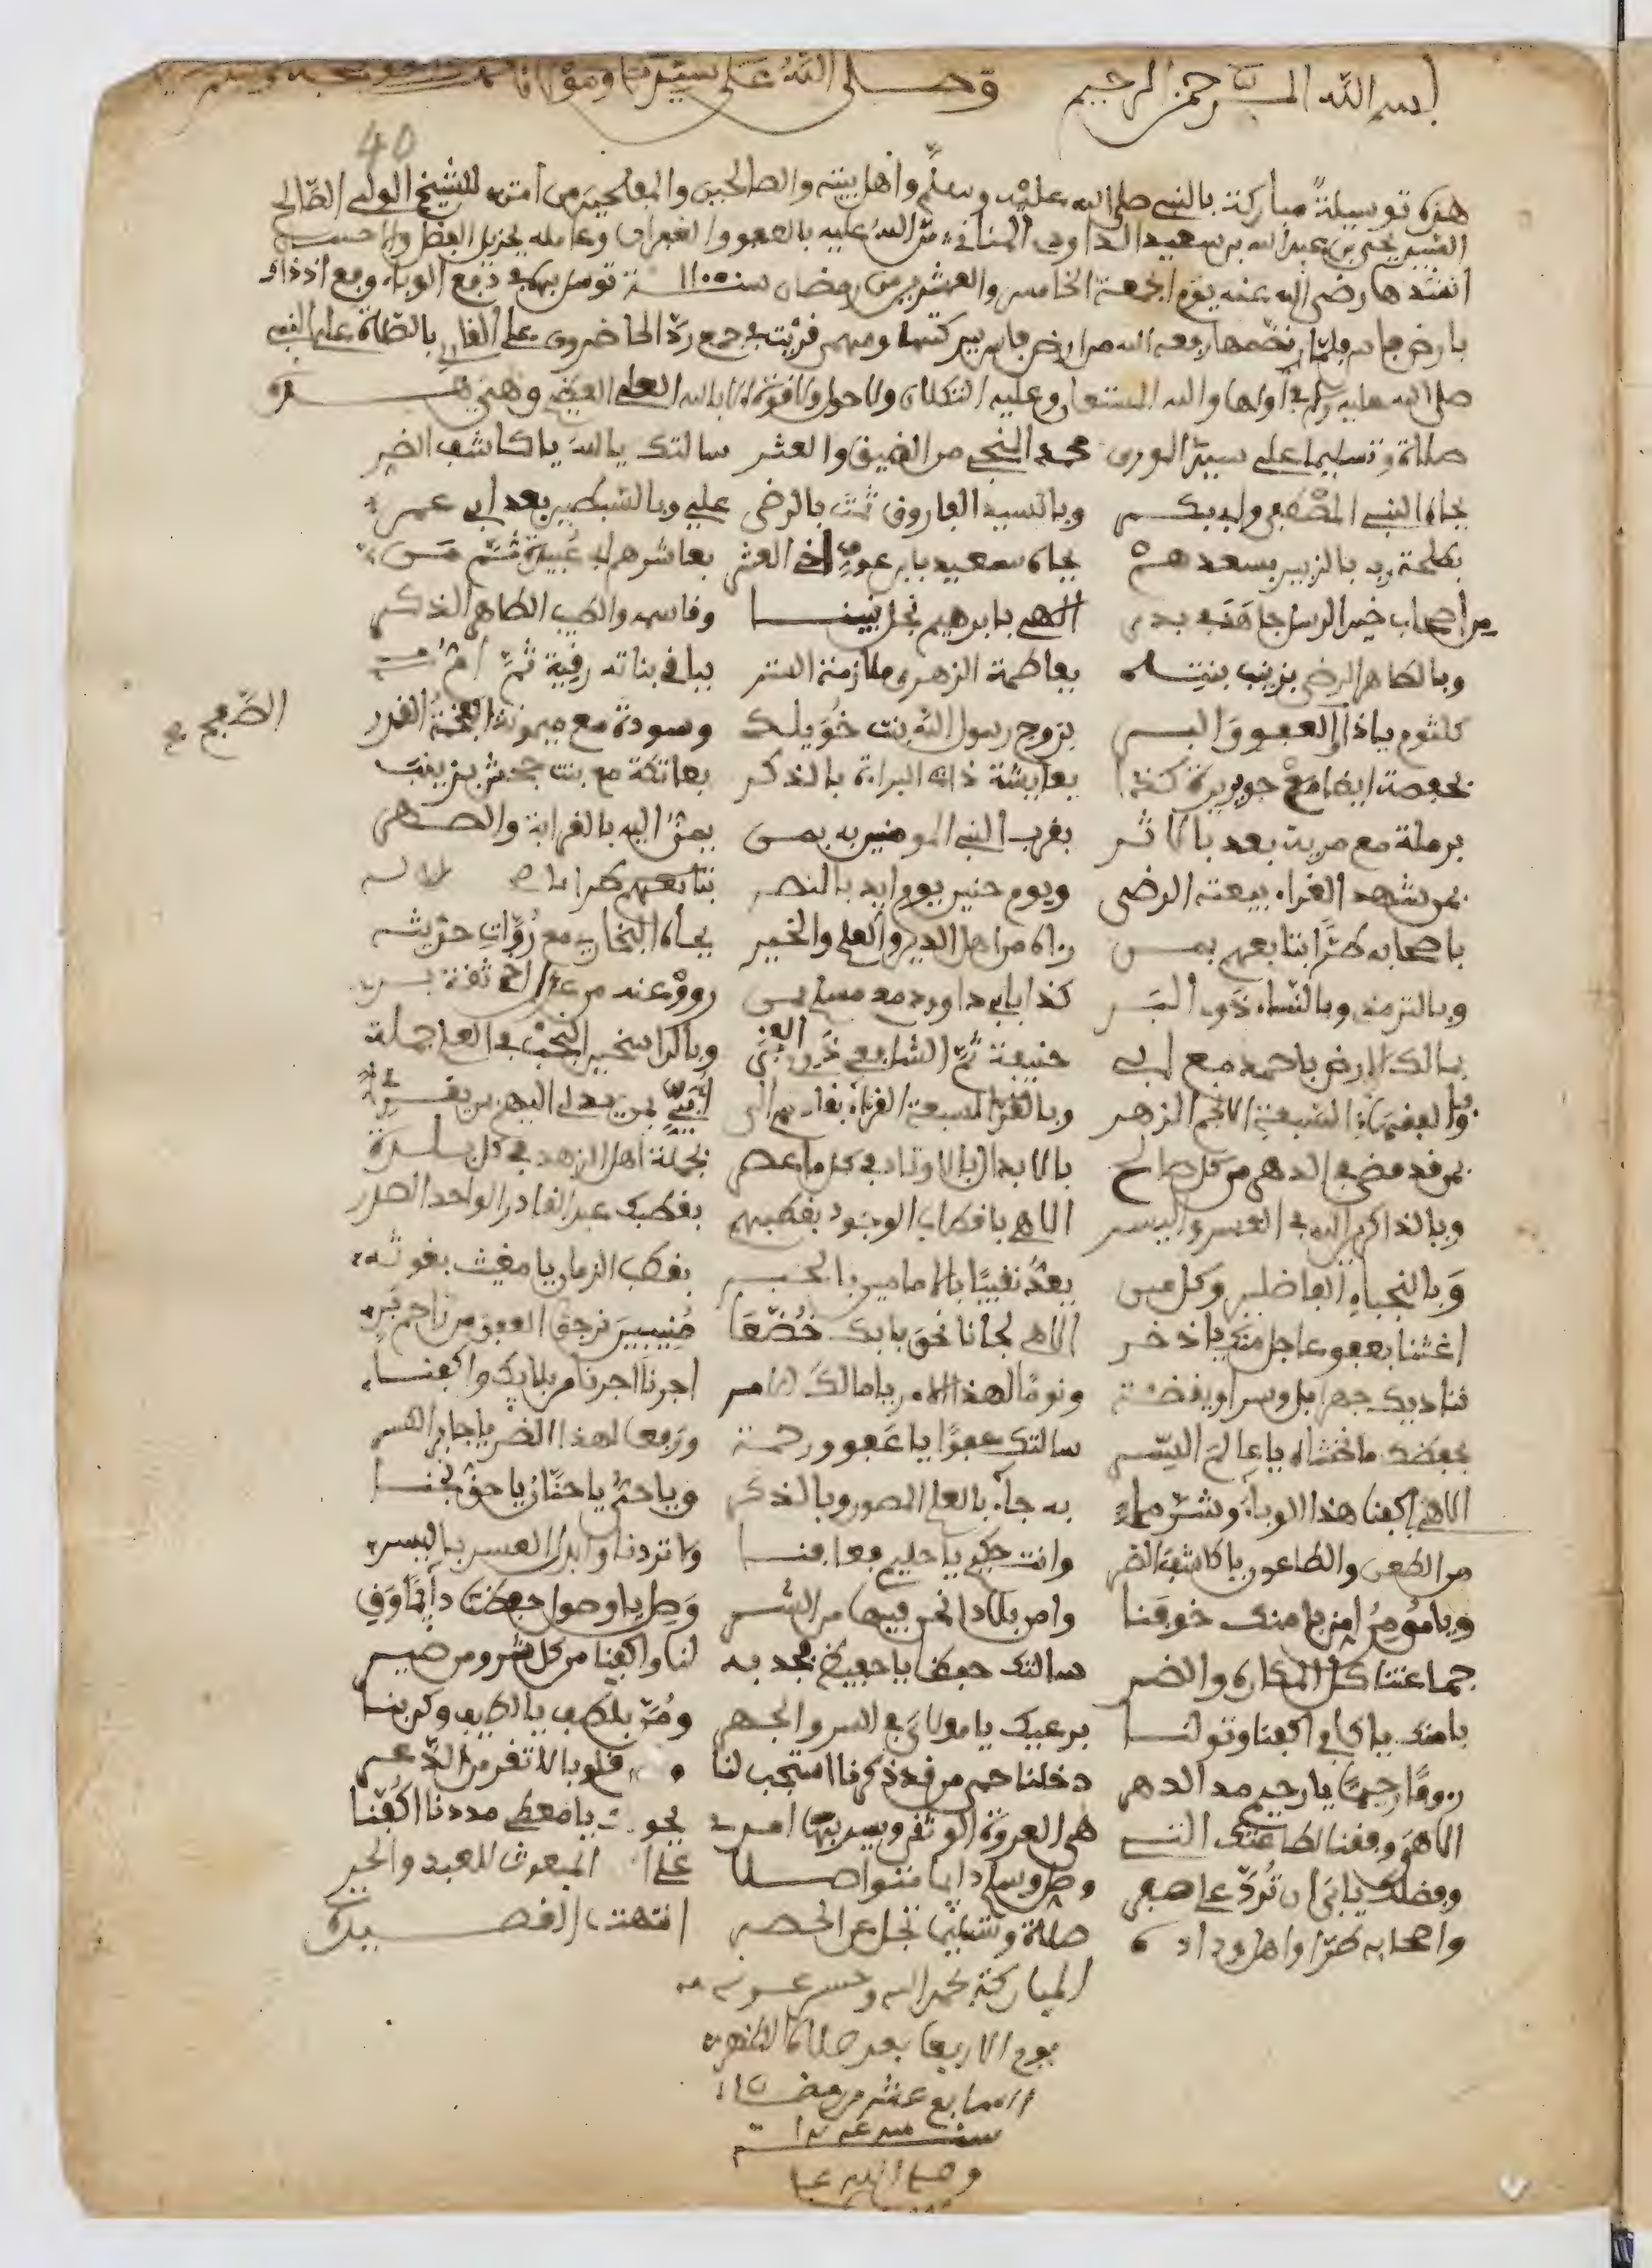 بسم الله الرحمن الرحيم وصلى الله على سيدنا ومولانا محمد وصحبه وسلم
40
هذه توسيلة مباركة بالنبي صلى الله عليه وسلم وأهل بيته والصالحين والمفلحين من أمته للشيخ الولي الصالح
السيد يحيى بن عبد الله بن سعيد الداودي المناني من الله عليه بالعفو والغفران وعامله بجزيل الفضل والاحسان
انشدها رضي الله عنه يوم الجمعة الخامس والعشرين من رمضان سنة 1100 توسل بها في دفع الوباء وقع اذ ذاك
بارض فاس فلما نظمها رفعه الله من ارض فاس ببركتها ومهمى قرئت في جمع رد الحاضرون على القارئ بالصلاة على النبي
صلى الله عليه وسلم في أولها والله المستعان وعليه التكلان ولا حول ولا قوة الا بالله العلي العظيم وهي هذه
صلاة وتسليما على سيد الورى محمد المنجي من الضيق والعسر سالتك يالله يا كاشف الضر
بجاه النبي المصطفى وابي بكر وبالسيد الفاروق ثمت بالرضى علي وبالسبطين بعد ابي عمر
بطلحة رب بالزبير بسعدهم بجاه سعيد بابن عوف اخي العشر بعاشرهم ابي عبيدة ثم من
من أصحاب خير الرسل جاهد في بدر الهي بابرهيم نجل نبينا وقاسم والطيب الطاهر الذكر
وبالطاهر الرضى بزينب بنته بفاطمة الزهرى ملازمة الستر بباقي بناته رقية ثم ام
كلثوم ياذا العفو والبر بزوج رسول الله بنت خويلد وسودة مع ميمونة الفخمة القدر
الصح
بحفصة ايضا مع جويرية كذا بعايشة ذات البراءة بالذكر بعاتكة مع بنت جحش بزينب
برملة مع مرية بعد بالاثر بقرب النبي المومنين به بمن يمت اليه بالقرابة والصهر
بمن شهد الغراء بيعته الرضى ويوم حنين يوم ايد بالنصر بتابعهم طرا
باصحابه طرا بتابعهم بمن رءاه من اهل الدين والعلم والخير بجاه البخاري مع رواة حديثه
وبالترمذي وبالنساء ذوي البر كذا بابي داود مع مسلم بمن رووا عنه من عدل اخي ثقة بر
بمالك الارضى باحمد مع ابي حنيفة ثم الشافعي ذوي وبالراسخين النجب في العلم جملة
وبالفقهاء السبعة الانجم الزهر وبالقراء السبعة الغر
بمن قد مضى في الدهر من كل صالح بالابدال بالاوتاد في كل ما عصر بجملة اهل الزهد في كل بلدة
وبالذاكرين الله في العسر واليسر الاهي باقطاب الوجود بقطبهم بقطبك عبد القادر الواحد الصدر
وبالنجباء الفاضلين وكل من يعد نقيبا بالامامين بالحبر بقطب الزمان يا مغيث بغوثه
اغثنا بعفو عاجل منك يا ذخر الاهي لجانا نحو بابك خضعا منيبين نرجو العفو من راحم بر
نناديك جهرا بل وسرا ويقظة ونوما لهذا الامر يا مالك الامر اجرنا اجرنا من بلايك واكفنا
بحفظك ما نخشاه يا عالم السر سالتك عفوا يا عفو ورحمة ورفعا لهذا الضر يا جابر الكسر
الاهي اكفنا هذا الوباء وشر ما به جاء بالعلم المصور وبالذكر ويا حي يا حنان يا حق نجنا
من الطعن والطاعون يا كاشف الضر وانت حكيم يا حليم فعافنا ولا تردنا وابدل العسر باليسر
ويا مومن امن بامنك خوفنا وامن بلادا نحن فيها من الشر وصل يا وصول حفظك دايما وفي
جماعتنا كل المكاره والضر سالتك حفظا يا حفيظ فجد به لنا واكفنا من كل شر ومن ضير
بامنك يا كافي اكفنا وتولنا برعيك يا مولاي في السر والجهر ومن بلطف يا لطيف وكن بنا
رءوفا رحيما يا رحيم مدا الدهر دخلنا حمى من قد ذكرنا استجب لنا قلوبا لا تفر من الذعر
الاهي وفقنا لطاعتك التي هي العروة الوثقى ويسر بها امري بجودك يا معطي مددنا اكفنا
وفضلك يابى ان ترد على صفر وصل وسلم دايما متواصلا على المبعوث للعبد والحر
واصحابه طرا واهل وداده صلاة وتسليما تجل عن الحصر انتهت القصيدة
المباركة بحمد الله وحسن عونه
يوم الاربعا بعد صلاة الظهر
السابع عشر من رمضان
سنة
وصلى الله على